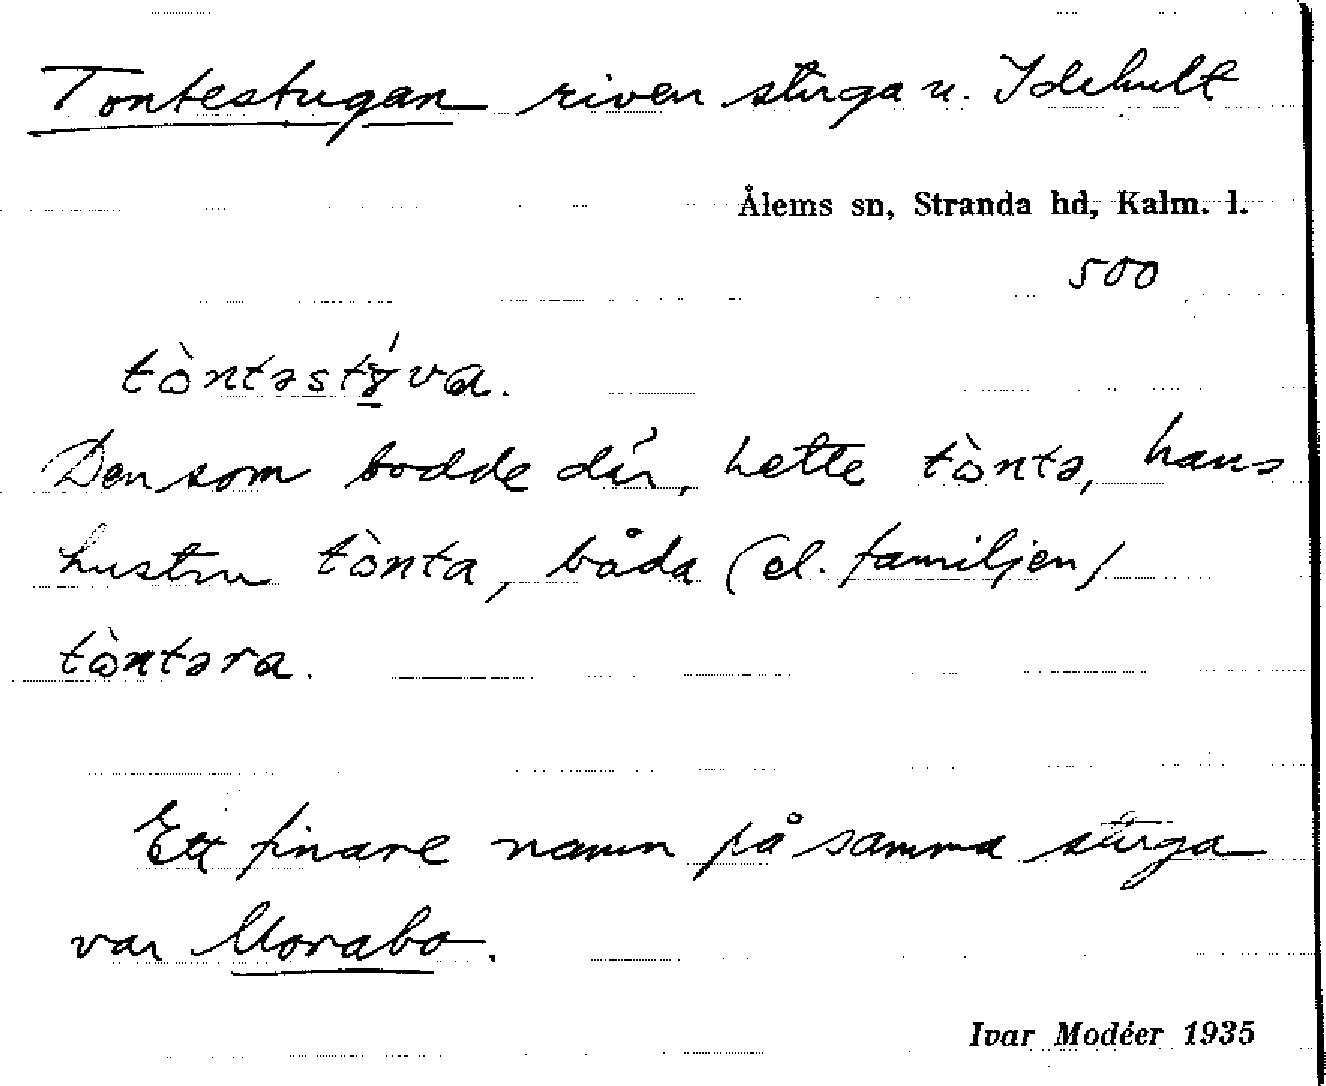 Tontestugan riven stuga u. Idehult
Ålems sn, Stranda hd, Kalm. l.
500
tòntəstý̱va.
Den som bodde där, hette tòntə, hans
hustru tònta, båda (el. familjen)
tòntəra.
Ett finare namn på samma stuga
var Morabo.
Ivar Modéer 1935